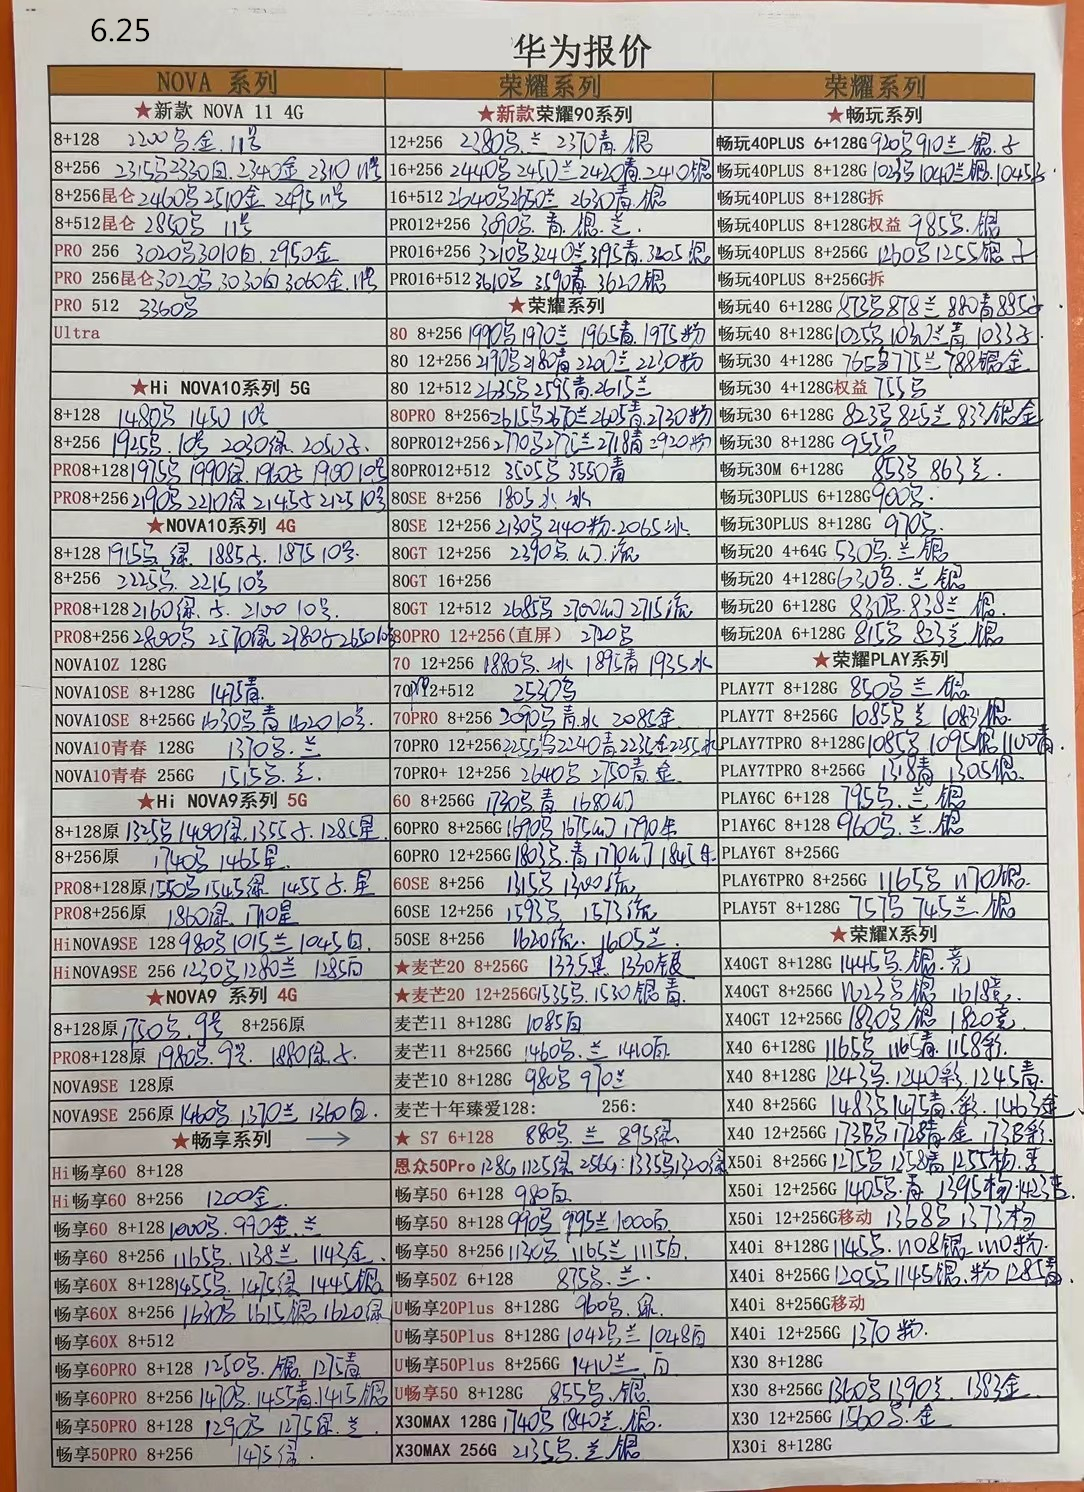 6.25
华为报价
NOVA 系列
★新款 NOVA 11 4G
8+128 2200乌.金.11号
8+256 2315乌2330白.2340金 2310 11号
8+256昆仑 2460乌2510金 2495 11号
8+512昆仑 2850乌 11号
PRO 256 3020乌3010白.2950金
PRO 256昆仑3020乌.3030白3060金.11号
PRO 512 3360乌
Ultra
★Hi NOVA10系列 5G
8+128 1480乌 1450 10号
8+256 1925乌.10号 2030绿.2050
PRO8+128 1975乌 1990绿.1960 1900 10号
PRO8+256 2190乌 2210绿 2145 2125 10号
★NOVA10系列 4G
8+128 1915乌.绿 1885 1875 10号.
8+256 2225乌. 2215 10号
PRO8+128 2160绿. 2100 10号.
PRO8+256 2800乌 2570绿 2780 2650
NOVA10Z 128G
NOVA10SE 8+128G 1475青.
NOVA10SE 8+256G 1630乌青1620 10号.
NOVA10青春 128G 1370乌.兰
NOVA10青春 256G 1515乌.兰.
★Hi NOVA9系列 5G
8+128原 1325乌1400绿.1355 1285星
8+256原 1740乌 1465星
PRO8+128原1550乌1545绿 1455 星
PRO8+256原 1860绿. 1710星
HiNOVA9SE 128 980乌1015兰1045白.
HiNOVA9SE 256 1230乌1280兰 1285白
★NOVA9 系列 4G
8+128原1750乌.9号 8+256原
PRO8+128原 1980乌.9号. 1880绿.
NOVA9SE 128原
NOVA9SE 256原 1460乌 1370兰 1360白.
★畅享系列 →
Hi畅享60 8+128
Hi畅享60 8+256 1200金.
畅享60 8+128 1000乌.990金.兰
畅享60 8+256 1165乌.1138兰 1143金.
畅享60X 8+128 1455乌.1475绿 1445银
畅享60X 8+256 1630乌 1615银1620绿
畅享60X 8+512
畅享60PRO 8+128 1250乌.银.1275青
畅享60PRO 8+256 1470乌.1455青.1415银
畅享50PRO 8+128 1290乌 1275绿.兰.
畅享50PRO 8+256 1475绿.
荣耀系列
★新款荣耀90系列
12+256 2380乌.兰 2370青.银
16+256 2440乌2450兰2420青.2410银
16+512 2640乌2650兰 2630青.银
PRO12+256 3090乌.青.银.兰.
PRO16+256 3210乌3240兰3195青.3205银
PRO16+512 3610乌 3590青 3620银
★荣耀系列
80 8+256 1990乌1970兰 1965青.1975粉
80 12+256 2190乌2180青2200兰2230粉
80 12+512 2635乌2595青.2615兰
80PRO 8+256 2615乌2670兰2605青2730粉
80PRO12+256 2770乌2775兰2718青2920粉
80PRO12+512 3505乌3550青
80SE 8+256 1805水.冰
80SE 12+256 2130乌2140粉.2065冰.
80GT 12+256 2390乌.幻.流
80GT 16+256
80GT 12+512 2685乌2700幻2715流
80PRO 12+256(直屏) 2720乌
70 12+256 1880乌.冰 1895青1935水
70 12+512 2530乌
70PRO 8+256 2090乌青.水 2085金
70PRO 12+256 2255乌2240青2235金2255水
70PRO+ 12+256 2640乌 2750青金
60 8+256G 1730乌青 1680幻
60PRO 8+256G 1690乌1675幻1790朱
60PRO 12+256G 1803乌.青1770幻1845朱
60SE 8+256 1315乌1300流
60SE 12+256 1593乌. 1573流
50SE 8+256 1620流. 1605兰.
★麦芒20 8+256G 1335黑 1330银
★麦芒20 12+256G 1535乌.1530银青.
麦芒11 8+128G 1085白
麦芒11 8+256G 1460乌.兰1410白.
麦芒10 8+128G 980乌 970兰
麦芒十年臻爱128: 256:
★ S7 6+128 880乌.兰 895绿
恩众50Pro 128G 1125绿 256G:1335乌1320绿
畅享50 6+128 980白.
畅享50 8+128 990乌 995兰1000白
畅享50 8+256 1130乌 1165兰 1115白.
畅享50Z 6+128 875乌.兰.
U畅享20Plus 8+128G 960乌.绿
U畅享50Plus 8+128G 1042乌兰1048白
U畅享50Plus 8+256G 1410兰.白
U畅享50 8+128G 855乌.银
X30MAX 128G 1740乌1840兰.银.
X30MAX 256G 2135乌.兰.银
荣耀系列
★畅玩系列
畅玩40PLUS 6+128G 920乌910兰.银.
畅玩40PLUS 8+128G 1023乌1040兰银.1045
畅玩40PLUS 8+128G拆
畅玩40PLUS 8+128G权益 985乌.银
畅玩40PLUS 8+256G 1260乌1255银
畅玩40PLUS 8+256G拆
畅玩40 6+128G 873乌878兰 880青885
畅玩40 8+128G 1025乌1030兰青 1033
畅玩30 4+128G 765乌775兰788银金
畅玩30 4+128G权益 755乌
畅玩30 6+128G 823乌825兰 833银金
畅玩30 8+128G 955乌
畅玩30M 6+128G 853乌 863兰.
畅玩30PLUS 6+128G 900乌.
畅玩30PLUS 8+128G 970乌.
畅玩20 4+64G 530乌.兰银
畅玩20 4+128G 630乌.兰银
畅玩20 6+128G 830乌.838兰.银
畅玩20A 6+128G 815乌 823兰.银
★荣耀PLAY系列
PLAY7T 8+128G 850乌兰 银.
PLAY7T 8+256G 1085乌兰 1083银.
PLAY7TPRO 8+128G 1085乌 1095银1100青.
PLAY7TPRO 8+256G 1318青 1305银.
PLAY6C 6+128 795乌.兰 银
PlAY6C 8+128 960乌.兰.银
PLAY6T 8+256G
PLAY6TPRO 8+256G 1165乌 1170银.
PLAY5T 8+128G 757乌 745兰.银
★荣耀X系列
X40GT 8+128G 1445乌.银.竞
X40GT 8+256G 1623乌银 1618竞.
X40GT 12+256G 1830乌银 1820竞.
X40 6+128G 1165乌 1165青.1158彩.
X40 8+128G 1243乌.1240彩.1245青.
X40 8+256G 1483乌1475青.彩.1463金
X40 12+256G 1738乌1728青.金 1738彩.
X50i 8+256G 1275乌1258青1255粉.
X50i 12+256G 1405乌.青 1395粉.1423
X50i 12+256G移动 1368乌1373粉
X40i 8+128G 1145乌.1108银.1110粉.
X40i 8+256G 1205乌1145银.粉1285青.
X40i 8+256G移动
X40i 12+256G 1370粉.
X30 8+128G
X30 8+256G 1360乌1390兰. 1383金.
X30 12+256G 1560乌.金
X30i 8+128G